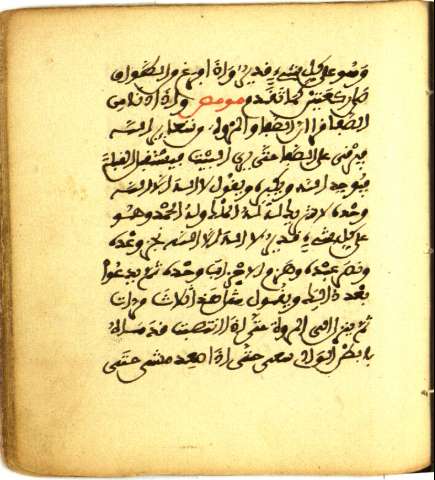 وهو على كل شيء قدير وإذا فرغ من الطواف
صلى ركعتين كما تقدم وإذا دنا من
الصفا قرأ إن الصفا والمروة من شعاير الله
فيرقى على الصفا حتى يرى البيت فيستقبل القبلة
فيوحد الله ويكبره ويقول لا إله إلا الله
وحده لا شريك له له الملك وله الحمد وهو
على كل شيء قدير لا إله إلا الله نجز وعده
ونصر عبده وهزم الاحزاب وحده ثم يدعوا
بعد ذلك ويقول مثل هذا ثلاث مرات
ثم ينزل إلى المروة حتى إذا انتصبت قدماه
بطن الوادي سعى حتى إذا صعد مشى حتى